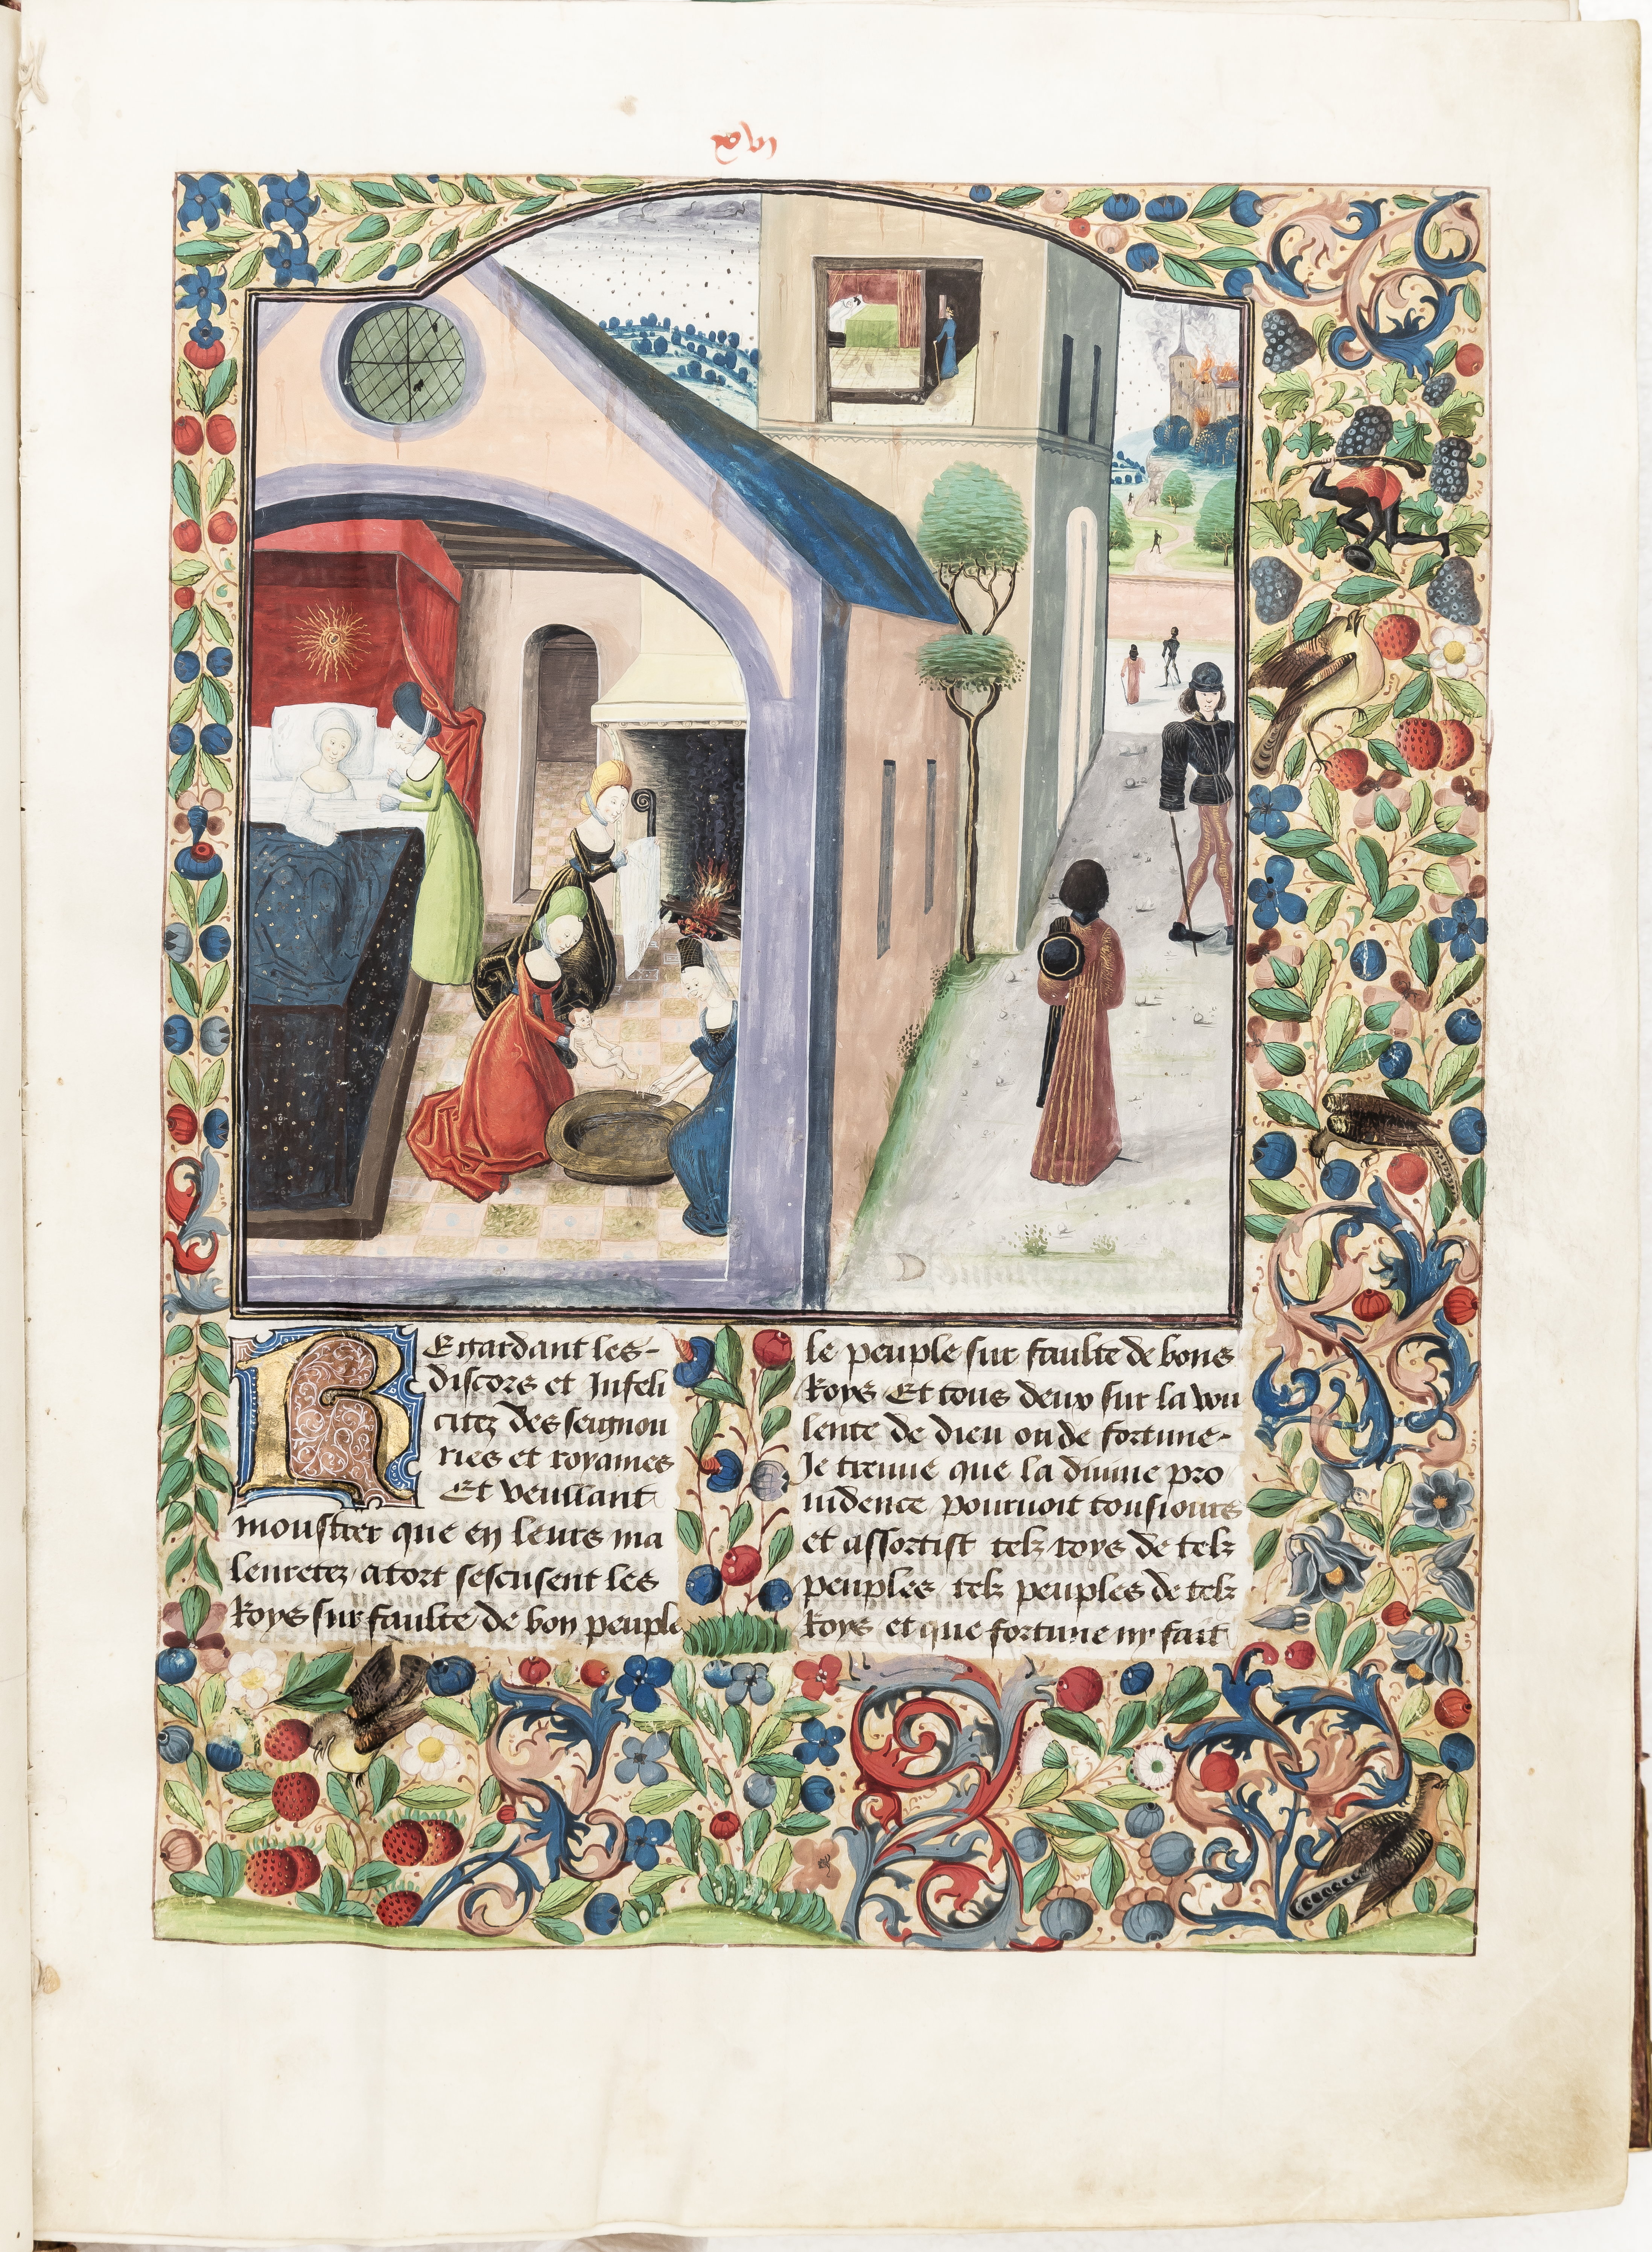 REgardant les-
discors et Infeli
citez des seignou
ries et royames
Et veullant
moustrer que en leurs ma
leuretez atort sescusent les
Roys sur faulte de bon peuple
le peuple sur faulte de bons
Roys Et tous deux sur la vou
lente de dieu ou de fortune-
Je tienne que la diuine pro
uidence pouruoit tousiours
et assortist telz roys de telz
peuples telz peuples de telz
Roys et que fortune ny fait